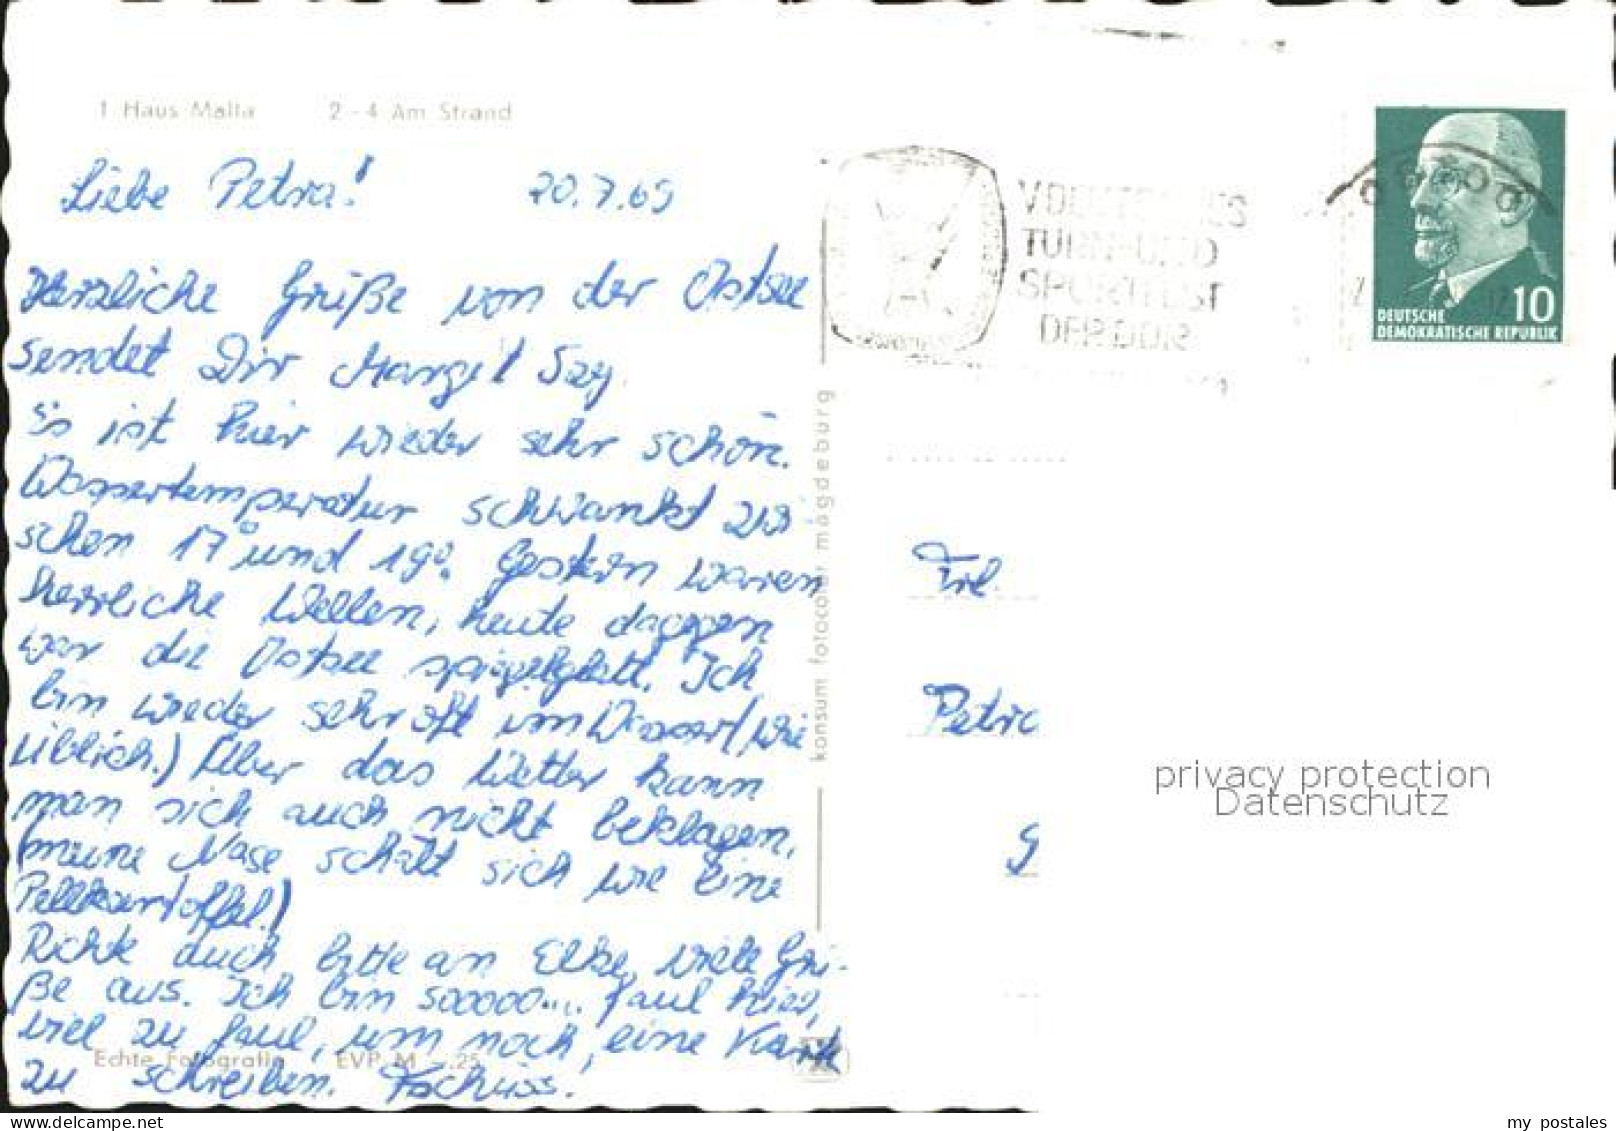 1 Haus Malta 2-4 Am Strand
Liebe Petra! 20.7.69
Herzliche Grüße von der Ostsee
sendet Dir
Es ist hier wieder sehr schön.
Wassertemperatur schwankt zwi
schen 17° und 19°. Gestern waren
herrliche Wellen, heute dagegen
war die Ostsee spiegelglatt. Ich
bin wieder sehr oft im Wasser (wie
üblich.) Über das Wetter kann
man sich auch nicht beklagen,
(meine Nase schält sich wie eine
Pellkartoffel.)
Richte auch bitte an Elke, viele Grü-
ße aus. Ich bin sooooo.... faul hier,
viel zu faul, um noch, eine Karte
zu schreiben. Tschüss.
Echte Fotografie EVP M -.25
konsum fotocolor magdeburg
V DEUTSCHES
TURN-UND
SPORTFEST
DER DDR
10
DEUTSCHE
DEMOKRATISCHE REPUBLIK
Frl.
Petra
G
privacy protection
Datenschutz
my postales